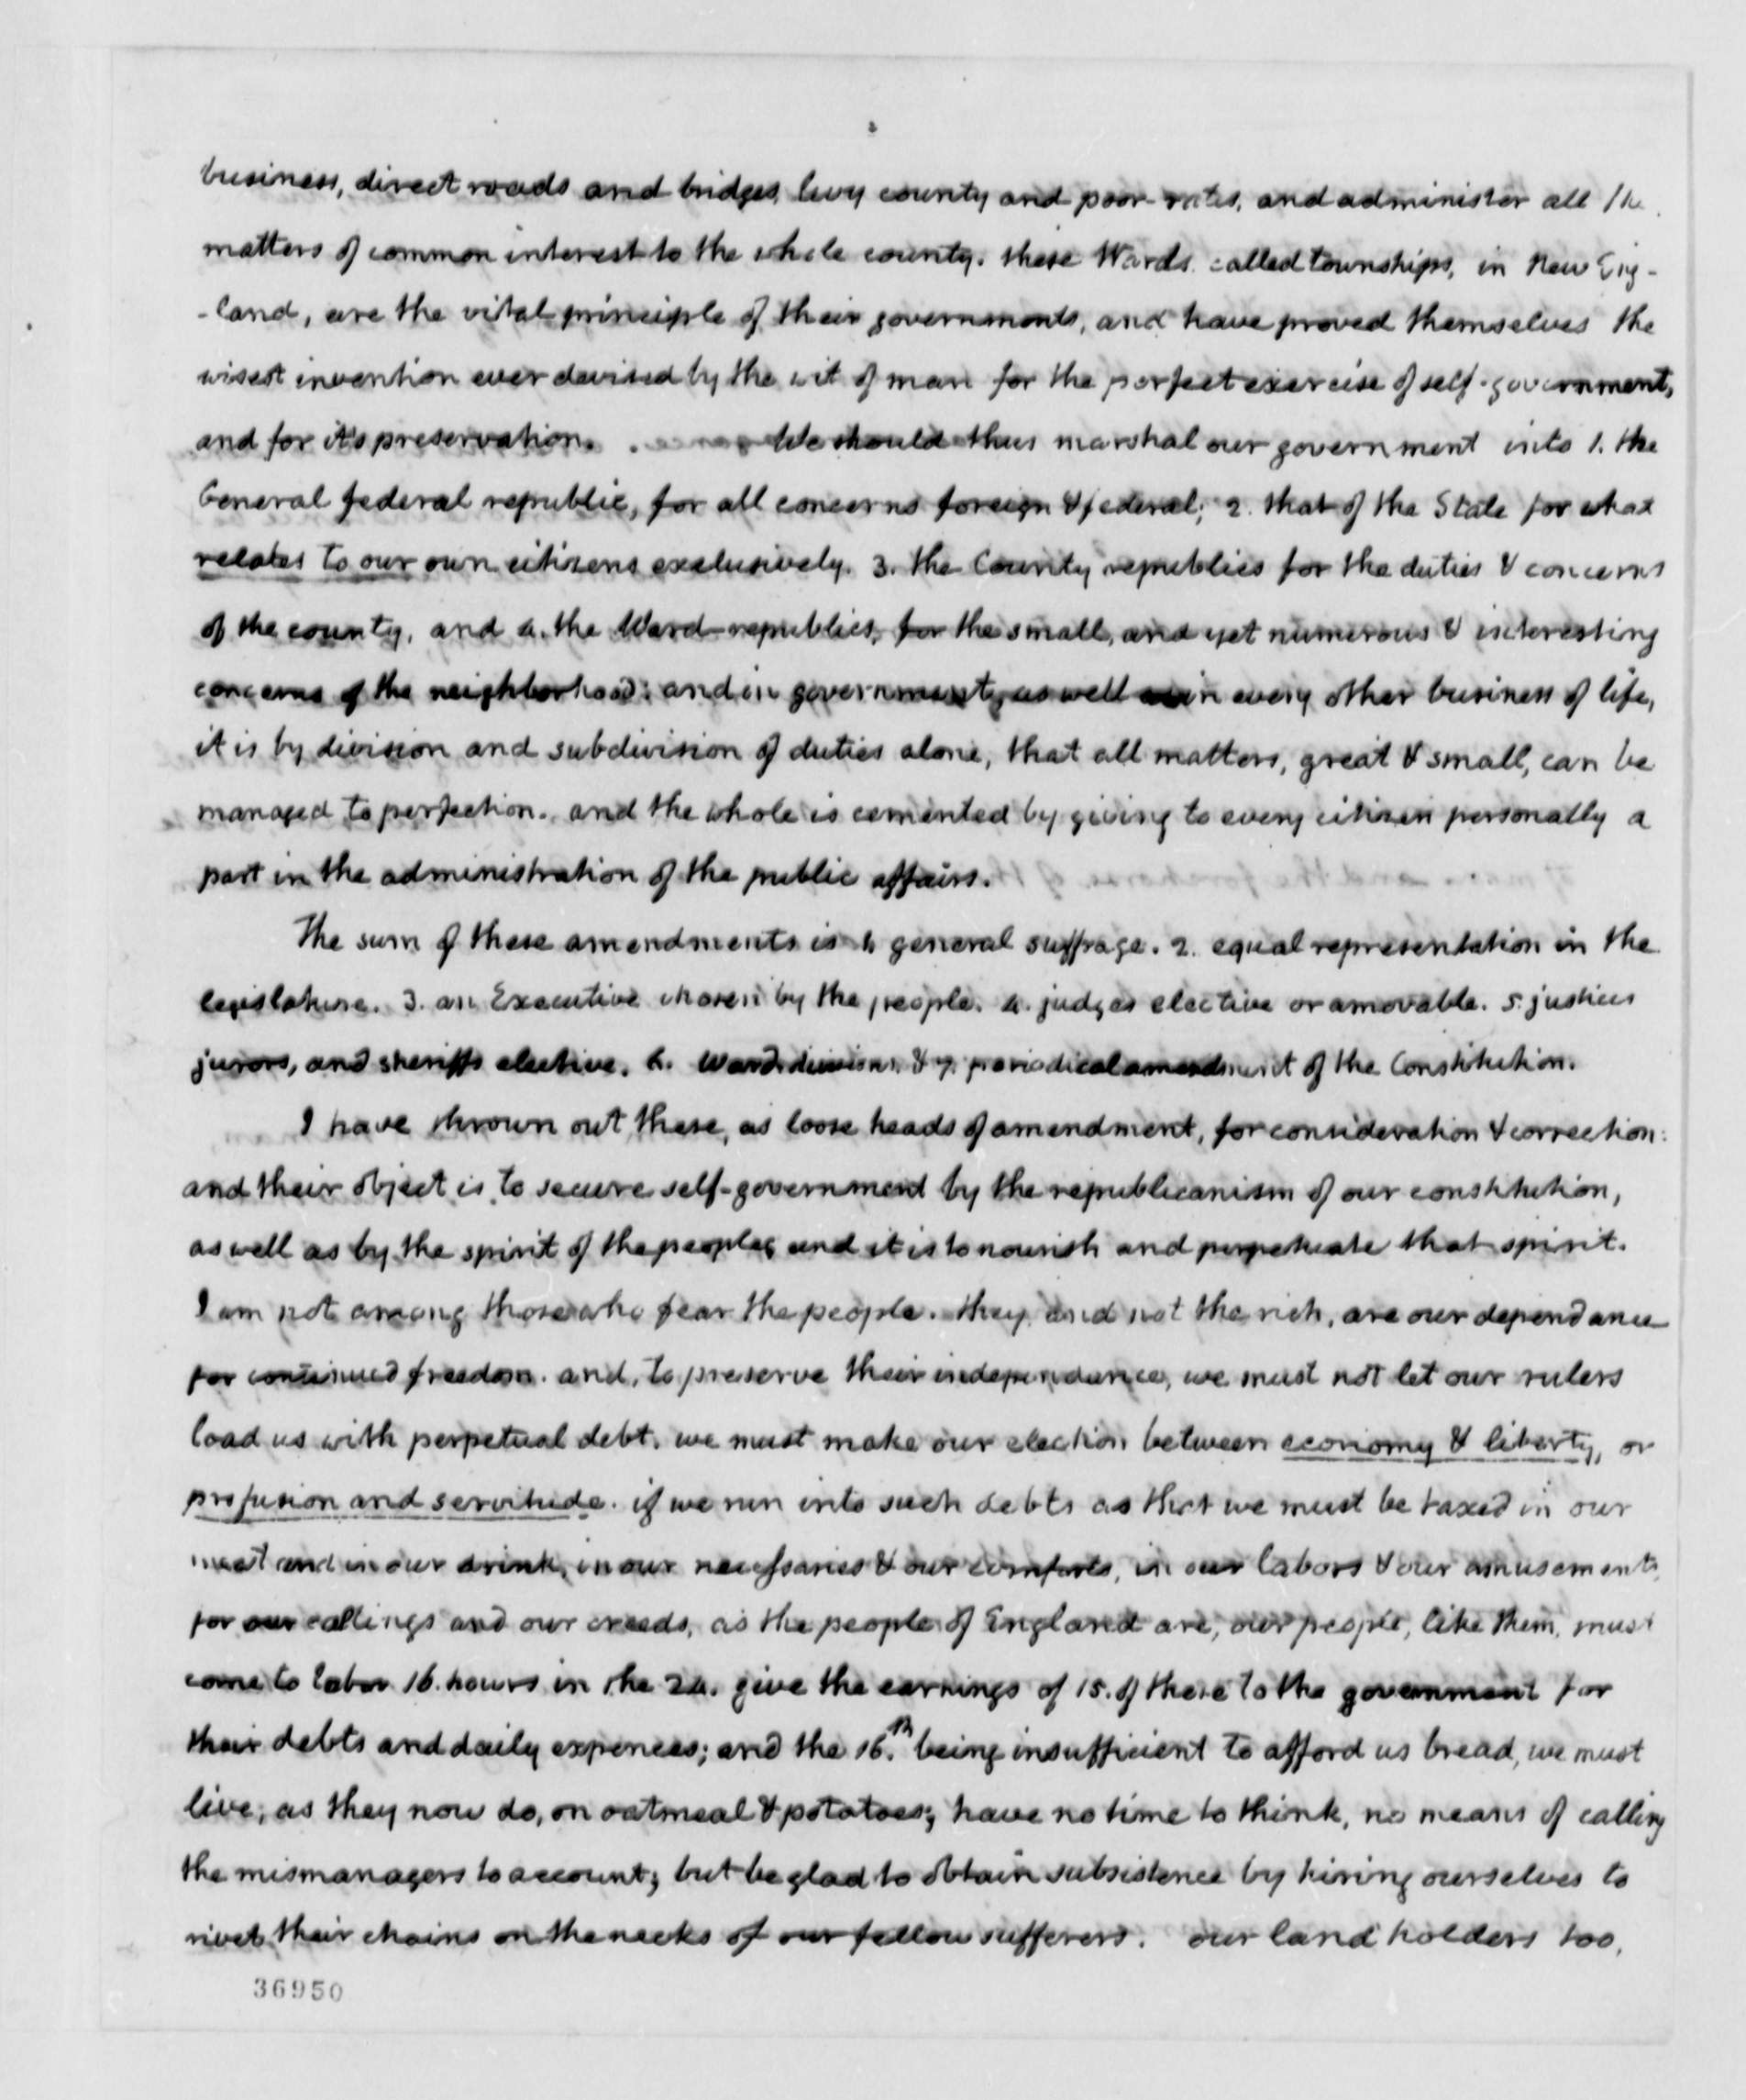 business, direct roads and bridges, levy county and poor-rates, and administer all the
matters of common interest to the whole county. these Wards. called townships, in New Eng-
-land, are the vital principle of their governments, and have proved themselves the
wisest invention ever devised by the wit of man for the perfect exercise of self-government,
and for it's preservation. We should thus marshal our government into 1. the
General federal republic, for all concerns foreign & federal; 2. that of the State for what
relates to our own citizens exclusively. 3. the County republics for the duties & concerns
of the county, and 4. the Ward-republics, for the small, and yet numerous & interesting
concerns of the neighborhood: and in government, as well as in every other business of life,
it is by division and subdivision of duties alone, that all matters, great & small, can be
managed to perfection. and the whole is cemented by giving to every citizen personally a
part in the administration of the public affairs.
The sum of these amendments is 1. general suffrage. 2. equal representation in the
legislature. 3. an Executive chosen by the people. 4. judges elective or amovable. 5. justices
jurors, and sheriffs elective. 6. Ward divisions. & 7. periodical amendment of the Constitution.
I have thrown out these, as loose heads of amendment, for consideration & correction:
and their object is to secure self-government by the republicanism of our constitution,
as well as by the spirit of the people; and it is to nourish and perpetuate that spirit.
I am not among those who fear the people. they and not the rich, are our dependance
for continued freedom. and, to preserve their independance, we must not let our rulers
load us with perpetual debt. we must make our election between economy & liberty, or
profusion and servitude. if we run into such debts as that we must be taxed in our
meat and in our drink, in our necessaries & our comforts, in our labors & our amusements,
for our callings and our creeds, as the people of England are, our people, like them, must
come to labor 16. hours in the 24. give the earnings of 15. of these to the government for
their debts and daily expences; and the 16.th being insufficient to afford us bread, we must
live, as they now do, on oatmeal & potatoes; have no time to think, no means of calling
the mismanagers to account; but be glad to obtain subsistence by hiring ourselves to
rivet their chains on the necks of our fellow sufferers. our land holders too,
36950